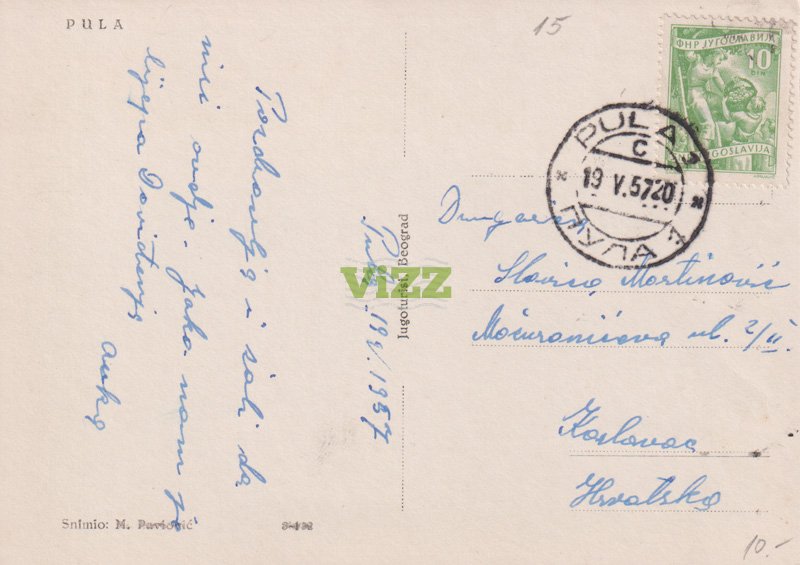 PULA
15
Pozdravlja i žali da
nisi ovdje. Jako nam je
lijepo Doviđenja
Anka
Pula 19.V.1957
Jugoturist, Beograd
VIZZ
ФНР ЈУГОСЛАВИЈА
10
DIN
JUGOSLAVIJA
PULA 1
C
19 V.57 20
ПУЛА 1
Drugarica
Slavica Martinović
Mažuranićeva ul. 2/II
Karlovac
Hrvatska
Snimio: M. Pavlović
10.-